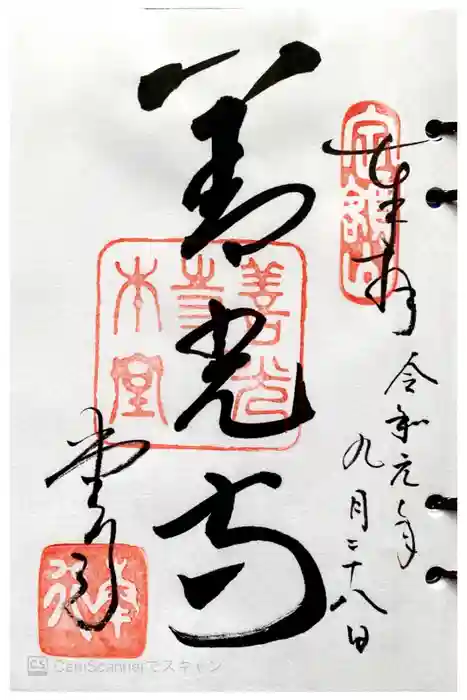 奉拝
令和元年
九月二十八日
定額山
善光寺
善光
寺
本堂
堂行
CS CamScannerでスキャン